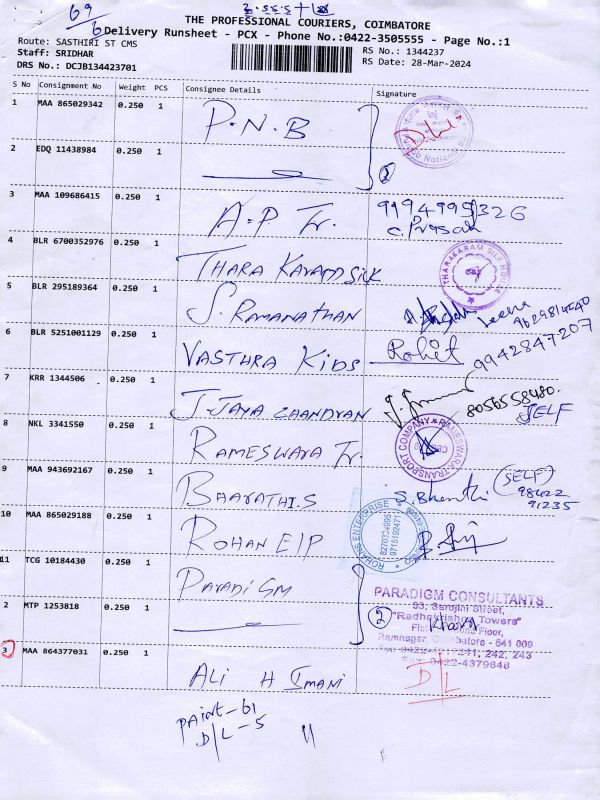 69
6
THE PROFESSIONAL COURIERS, COIMBATORE
Delivery Runsheet - PCX - Phone No.:0422-3505555 - Page No.:1
Route: SASTHIRI ST CMS
RS No.: 1344237
Staff: SRIDHAR
RS Date: 28-Mar-2024
DRS No.: DCJB134423701
S No Consignment No Weight PCS Consignee Details Signature
1 MAA 865029342 0.250 1 P.N.B
2 EDQ 11438984 0.250 1
②
3 MAA 109686415 0.250 1 A.P Tr. 9194995326
C. Prasah
4 BLR 6700352976 0.250 1 THARA KARAMD SILK
THARAKARAM SILK HOUSE
5 BLR 295189364 0.250 1 S. RAMANATHAN
9629814640
6 BLR 5251001129 0.250 1 VASTHRA KIDS Rohit 9942847207
7 KRR 1344506 0.250 1 J. JAYA CHANDRAN 8056558480.
SELF
8 NKL 3341550 0.250 1 RAMESWARA Tr.
RAMESWARA TRANSPORT COMPANY
9 MAA 943692167 0.250 1 BHARATHI.S S. Bharathi (SELF)
98422
91235
10 MAA 865029188 0.250 1 ROHAN EIP
ROHANS ENTERPRISE
11 TCG 10184430 0.250 1 PARADIGM
PARADIGM CONSULTANTS
33, Sarojini Street,
"Radhakrishna Towers"
2 MTP 1253818 0.250 1
②
Floor,
Ramnagar, Coimbatore - 641 009
241, 242, 243
Fax: 0422-4379848
3 MAA 864377031 0.250 1 ALI H IMANI D/L
PAINT-61
D/L-5
11